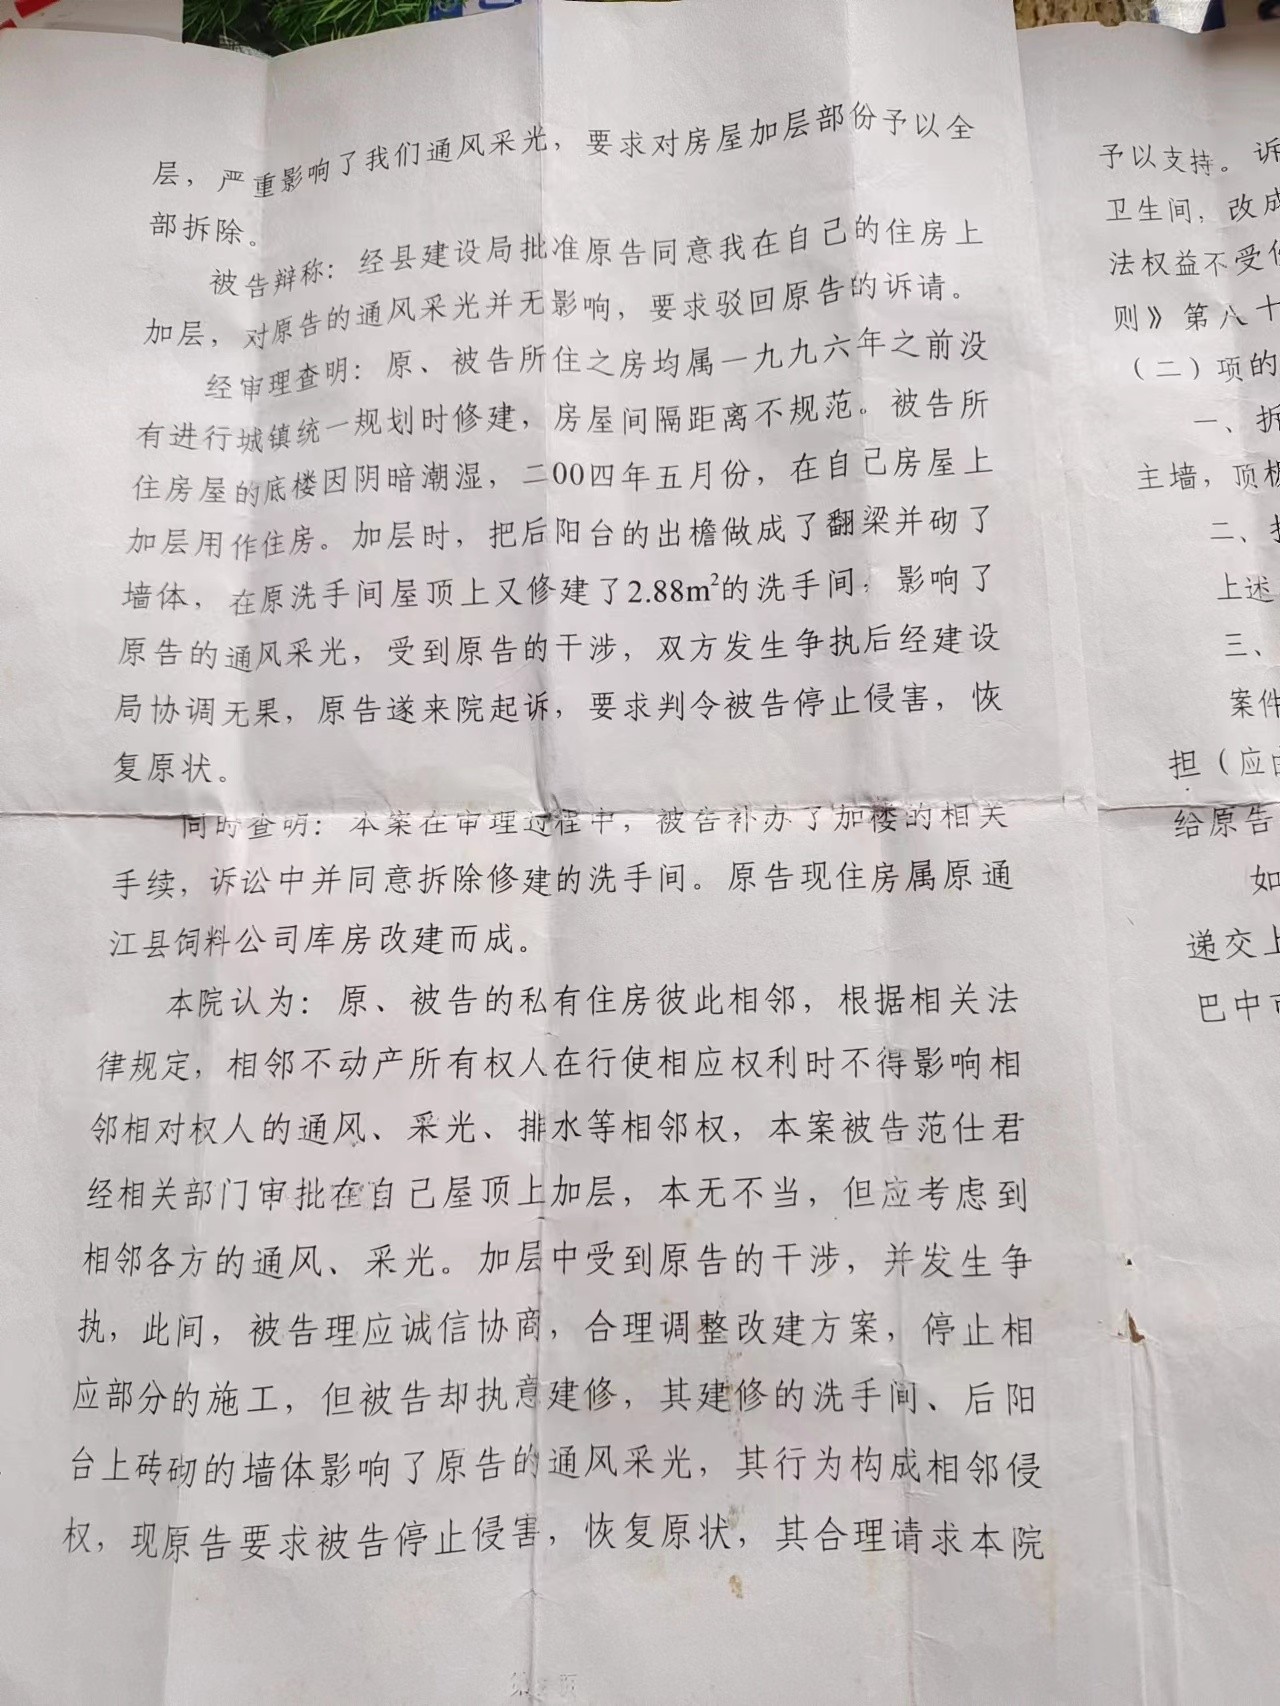 层，严重影响了我们通风采光，要求对房屋加层部份予以全
部拆除。
被告辩称：经县建设局批准原告同意我在自己的住房上
加层，对原告的通风采光并无影响，要求驳回原告的诉请。
经审理查明：原、被告所住之房均属一九九六年之前没
有进行城镇统一规划时修建，房屋间隔距离不规范。被告所
住房屋的底楼因阴暗潮湿，二00四年五月份，在自己房屋上
加层用作住房。加层时，把后阳台的出檐做成了翻梁并砌了
墙体，在原洗手间屋顶上又修建了2.88m²的洗手间，影响了
原告的通风采光，受到原告的干涉，双方发生争执后经建设
局协调无果，原告遂来院起诉，要求判令被告停止侵害，恢
复原状。
同时查明：本案在审理过程中，被告补办了加楼的相关
手续，诉讼中并同意拆除修建的洗手间。原告现住房属原通
江县饲料公司库房改建而成。
本院认为：原、被告的私有住房彼此相邻，根据相关法
律规定，相邻不动产所有权人在行使相应权利时不得影响相
邻相对权人的通风、采光、排水等相邻权，本案被告范仕君
经相关部门审批在自己屋顶上加层，本无不当，但应考虑到
相邻各方的通风、采光。加层中受到原告的干涉，并发生争
执，此间，被告理应诚信协商，合理调整改建方案，停止相
应部分的施工，但被告却执意建修，其建修的洗手间、后阳
台上砖砌的墙体影响了原告的通风采光，其行为构成相邻侵
权，现原告要求被告停止侵害，恢复原状，其合理请求本院
予以支持。诉
卫生间，改成
法权益不受
则》第八十
（二）项的
一、拆
主墙，顶板
二、
上述
三、
案件
担（应由
给原告
如
递交上
巴中市